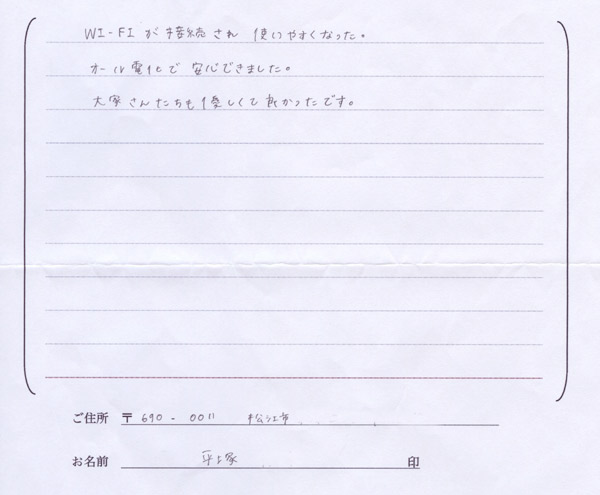 WI-FI が接続され 使いやすくなった。
オール電化で 安心できました。
大家さんたちも優しくて良かったです。
ご住所 〒690-0011 松江市
お名前 平塚 印